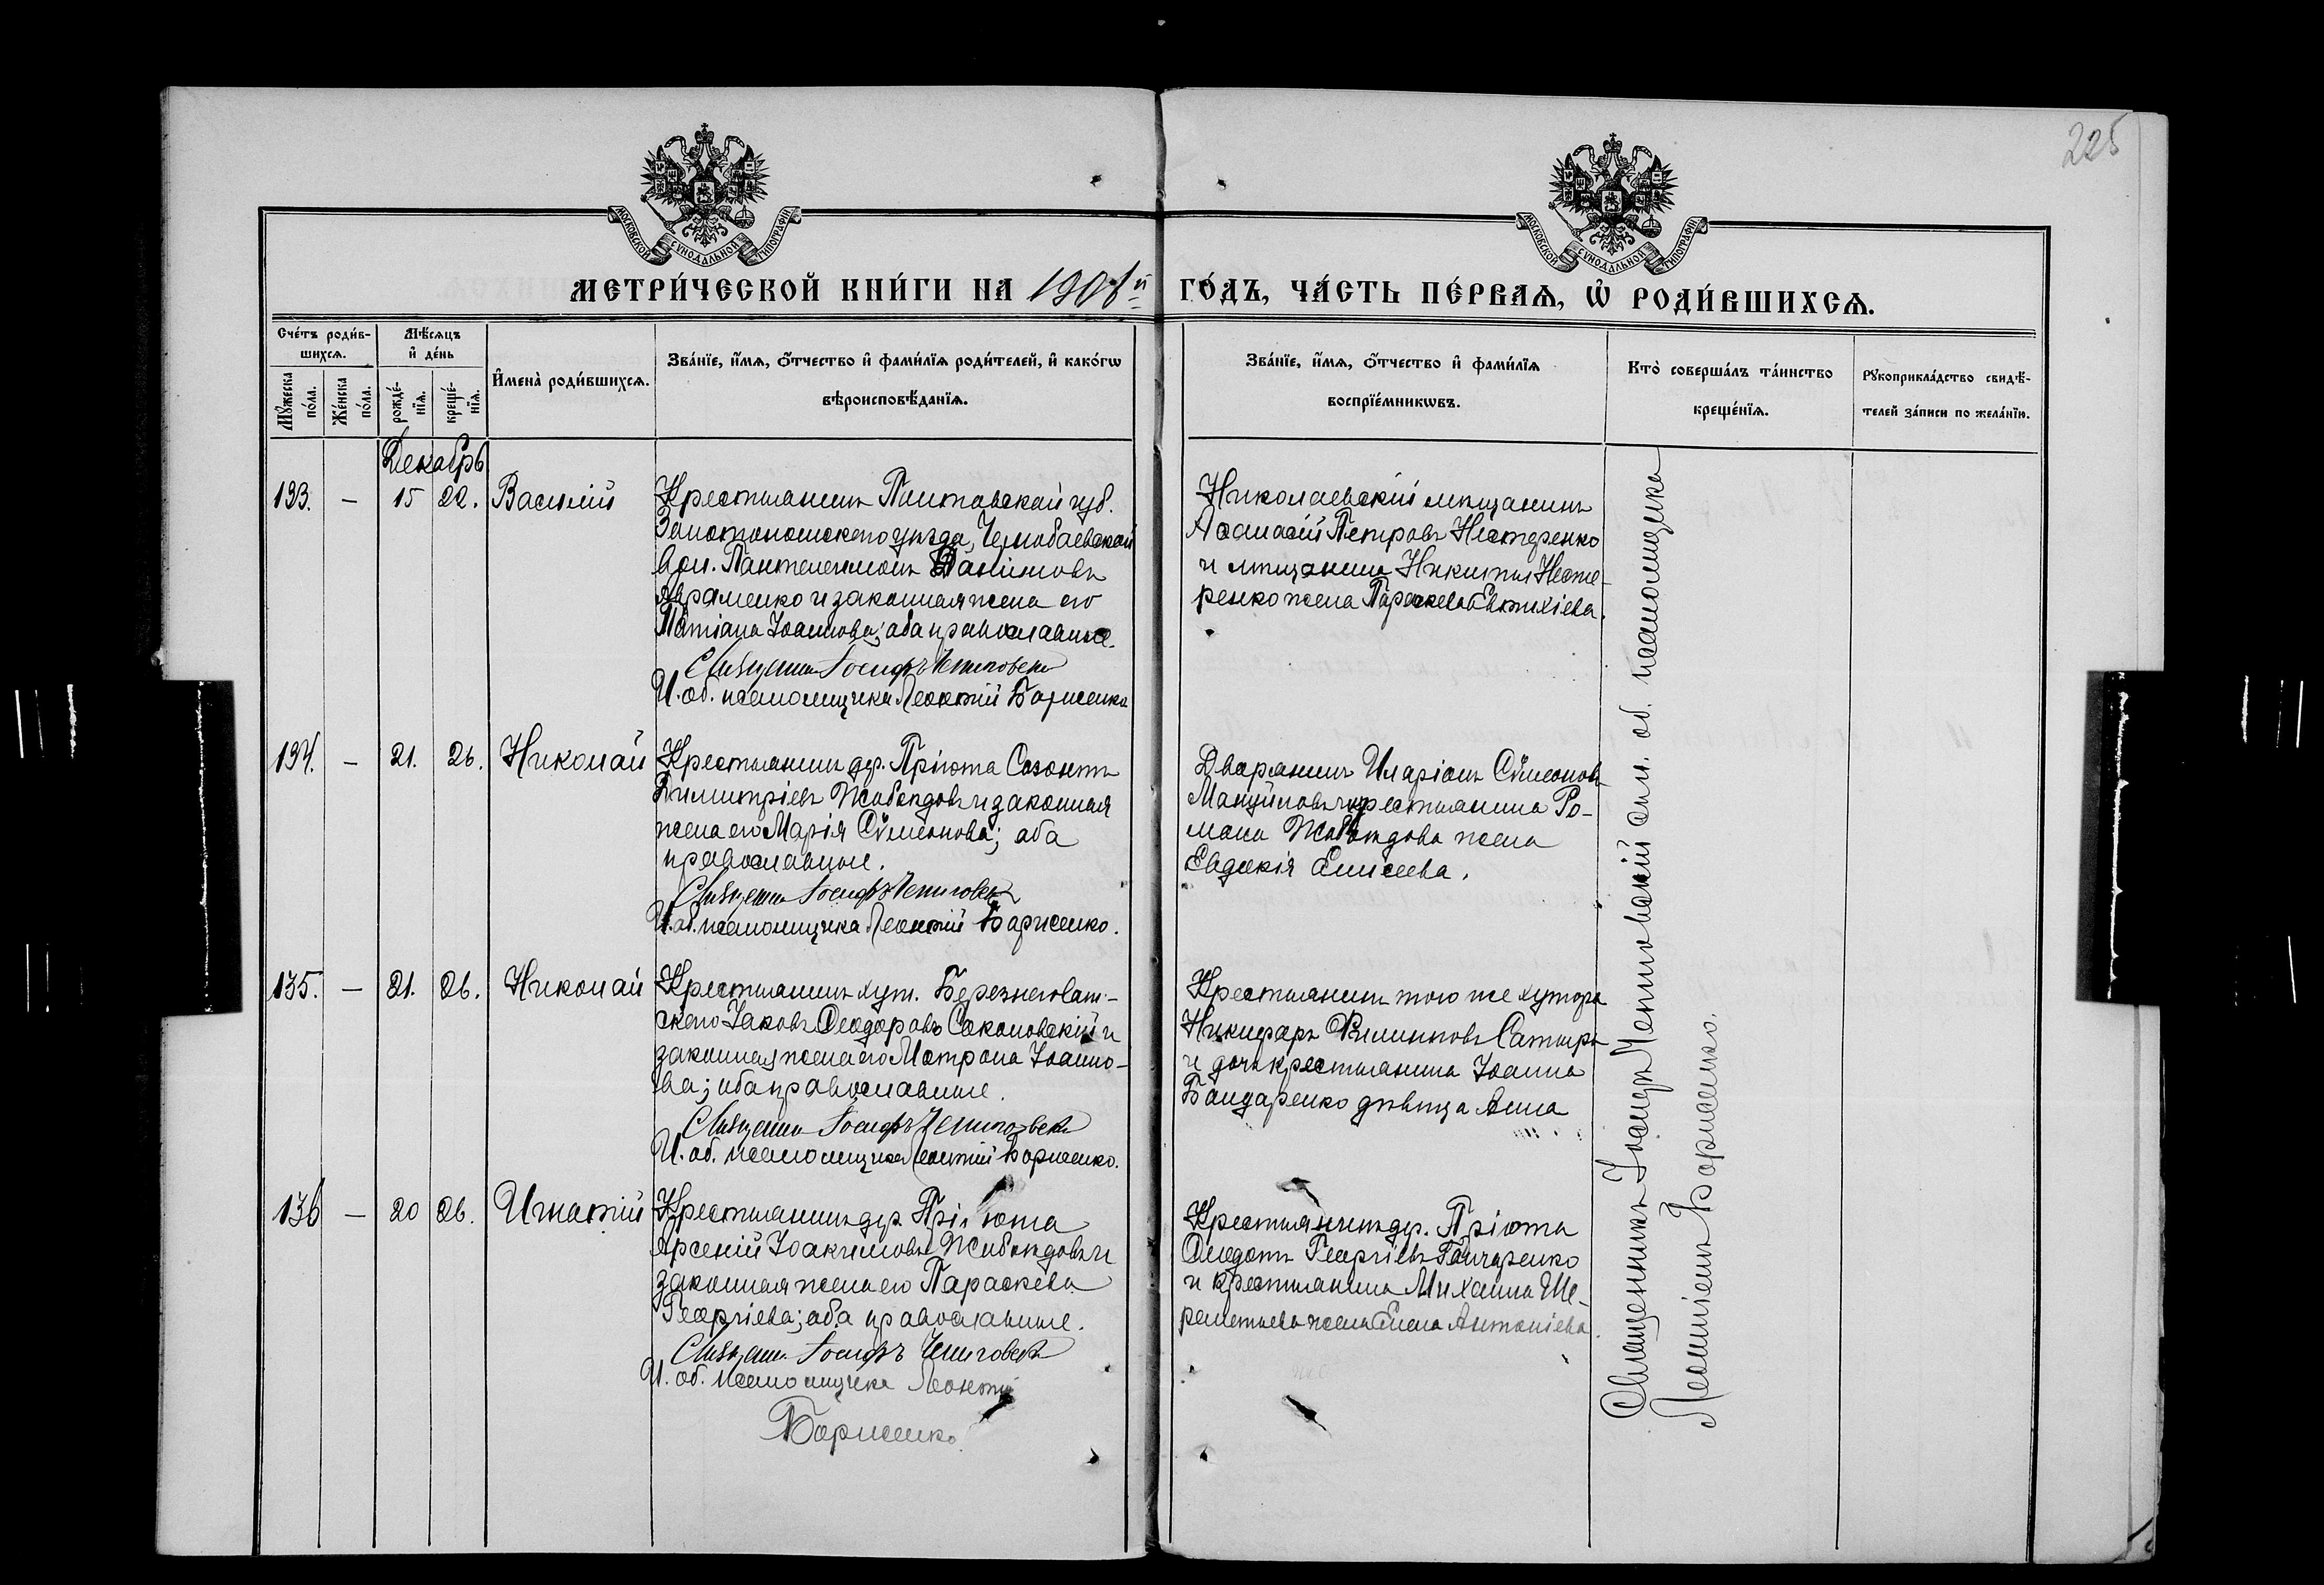 225
МОСКОВСКОЙ СѴНОДАЛЬНОЙ ТИПОГРАФІИ
МОСКОВСКОЙ СѴНОДАЛЬНОЙ ТИПОГРАФІИ
МЕТРИ́ЧЕСКОЙ КНИ́ГИ НА 1908й ГО́ДЪ, ЧА́СТЬ ПЕ́РВАѦ, Ѡ҆ РОДИ́ВШИХСѦ.
Сче́тъ роди́в-
шихсѧ.
Мѣ́сѧцъ
и҆ де́нь
Мꙋ́жеска
по́ла.
Же́нска
по́ла.
рожде́-
нїѧ.
креще́-
нїѧ.
И҆мена̀ роди́вшихсѧ.
Зва́нїе, и҆́мѧ, ѻ҆́тчество и҆ фами́лїѧ роди́телей, и҆ како́гѡ
вѣроисповѣ́данїѧ.
Зва́нїе, и҆́мѧ, ѻ҆́тчество и҆ фами́лїѧ
воспрїе́мникѡвъ.
Кто̀ соверша́лъ та́инство
креще́нїѧ.
Рꙋкоприкла́дство свидѣ́-
телей за́писи по жела́нїю.
Декабрь
133. — 15 22. Василій
Крестьянинъ Полтавской губ.
Золотоношскаго уѣзда, Чернобаевской
вол. Пантелеимонъ Даніиловъ
Авраменко и законная жена его
Татіана Іоаннова; оба православные.
Священникъ Іосифъ
И. об. псаломщика Леонтій Борисенко
Николаевскій мѣщанинъ
Аѳанасій Петровъ Нестеренко
и мѣщанина Никиты Несте-
ренко жена Параскева Евтихіева.
134. — 21. 26. Николай
Крестьянинъ дер. Пріюта Созонтъ
Димитріевъ Жабондовъ и законная
жена его Марія Сѵмеонова; оба
православные.
Священникъ Іосифъ
И. об. псаломщика Леонтій Борисенко.
Дворянинъ Иларіонъ Сѵмеоновъ
Мануйловъ и крестьянина Ро-
мана Жабондова жена
Евдокія Елисеева.
135. — 21. 26. Николай
Крестьянинъ хут. Березнеговат-
скаго Іаковъ Ѳеодоровъ Соколовскій и
законная жена его Матрона Іоанно-
ва; оба православные.
Священникъ Іосифъ
И. об. псаломщика Леонтій Борисенко.
Крестьянинъ того же хутора
Никифоръ Филипповъ Сатыръ
и дочь крестьянина Іоанна
Бондаренко дѣвица Анна
136 — 20 26. Игнатій
Крестьянинъ дер. Пріюта
Арсеній Іоакимовъ Жабондовъ и
законная жена его Параскева
Георгіева; оба православные.
Священникъ Іосифъ
И. об. псаломщика Леонтій
Борисенко.
Крестьянинъ дер. Пріюта
Ѳеодотъ Георгіевъ Гончаренко
и крестьянина Михаила Ше-
реметьева жена Елена Антоніева.
Священникъ Іосифъ и. об. псаломщика
Леонтій Борисенко.